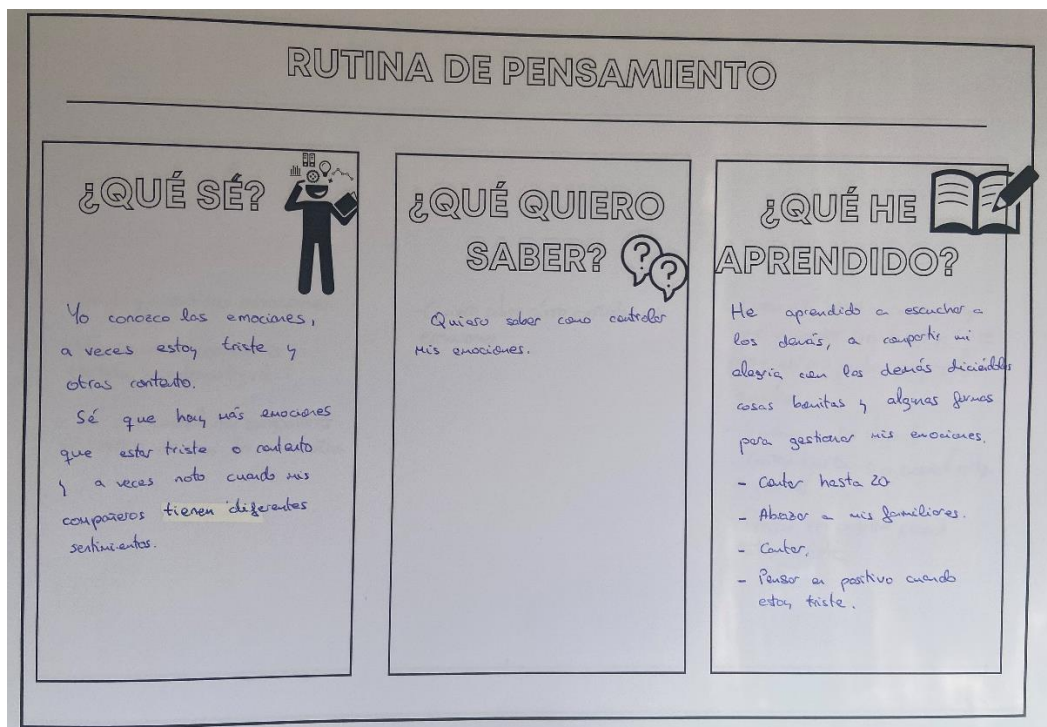 RUTINA DE PENSAMIENTO
¿QUÉ SÉ?
Yo conozco las emociones,
a veces estoy triste y
otras contento.
Sé que hay más emociones
que estar triste o contento
y a veces noto cuando mis
compañeros tienen diferentes
sentimientos.
¿QUÉ QUIERO
SABER?
Quiero saber como controlar
mis emociones.
¿QUÉ HE
APRENDIDO?
He aprendido a escuchar a
los demás, a compartir mi
alegría con los demás diciéndoles
cosas bonitas y algunas formas
para gestionar mis emociones.
- Contar hasta 20
- Abrazar a mis familiares.
- Cantar.
- Pensar en positivo cuando
estoy triste.